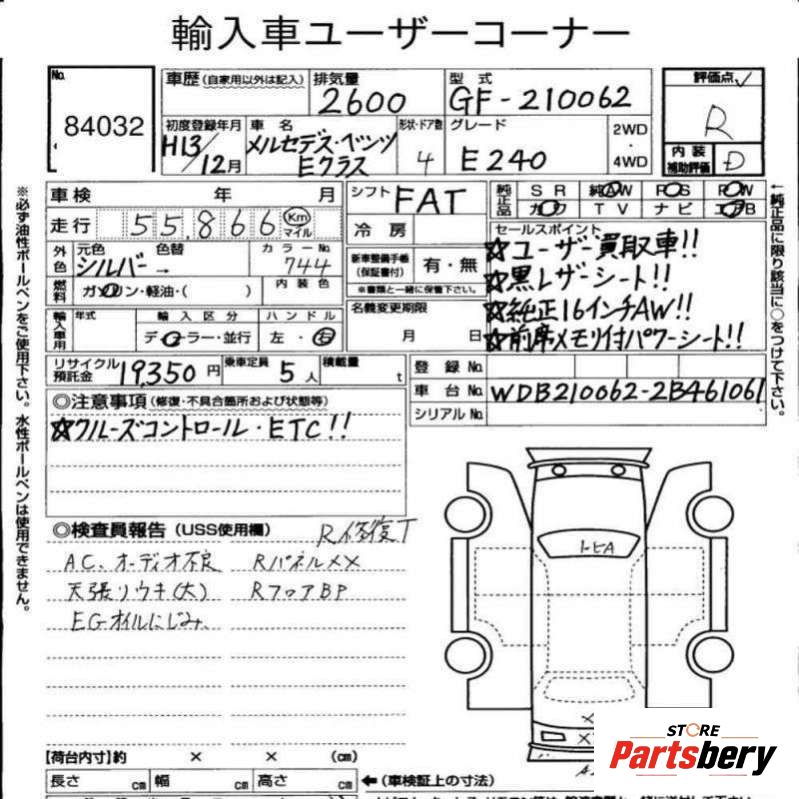 輸入車ユーザーコーナー
No. 84032
車歴 (自家用以外は記入) 排気量 2600 型式 GF-210062
評価点 R
初度登録年月 H13/12月 車名 メルセデス・ベンツ Eクラス 形状・ドア数 4 グレード E240 2WD・4WD
内装補助評価 D
車検 年 月 シフト FAT 純正品 SR 純AW PS PW
カワ TV ナビ エアB
走行 55,866 Km マイル 冷房
セールスポイント
☆ユーザー買取車!!
☆黒レザーシート!!
☆純正16インチAW!!
☆前席メモリ付パワーシート!!
外色 元色 シルバー 色替 → カラーNo. 744
新車整備手帳(保証書付) 有・無
※書類と一緒に保管下さい。
燃料 ガソリン・軽油・( ) 内装色
名義変更期限 月 日
輸入車用 年式 輸入区分 ディーラー・並行 ハンドル 左・右
リサイクル預託金 19,350円 乗車定員 5人 積載量 t
登録No.
車台No. WDB210062-2B461061
シリアルNo.
◎注意事項 (修復・不具合箇所および状態等)
☆クルーズコントロール・ETC!!
◎検査員報告 (USS使用欄) R修復T
AC、オーディオ不良 RパネルXX
天張リウキ(大) RフロアBP
EGオイルにじみ
トビA
【荷台内寸】約 × × (cm)
長さ cm 幅 cm 高さ cm ←(車検証上の寸法)
※必ず油性ボールペンをご使用下さい。水性ボールペンは使用できません。
←純正品に限り該当に○をつけて下さい。
STORE
Partsbery